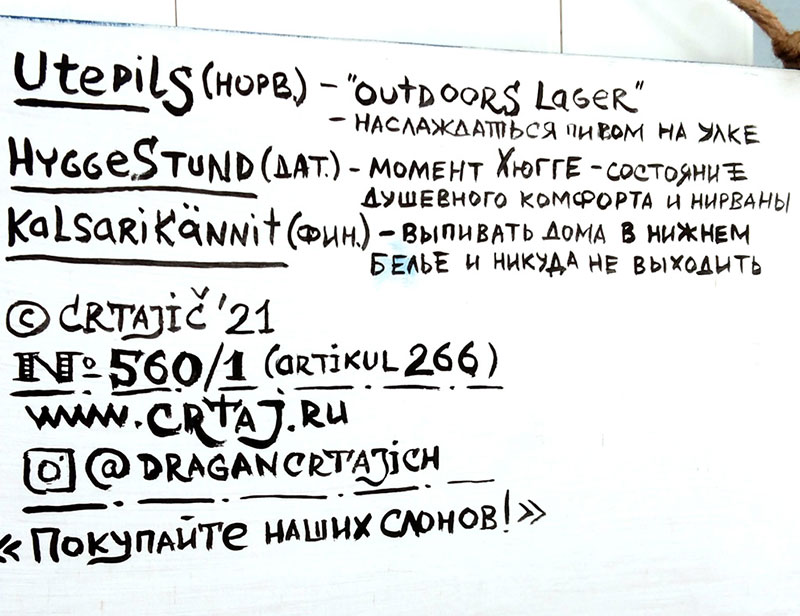 Utepils (НОРВ.) – "OUTDOORS LAGER"
– НАСЛАЖДАТЬСЯ ПИВОМ НА УЛКЕ
HYGGESTUND (ДАТ.) – МОМЕНТ ХЮГГЕ – СОСТОЯНИЕ
ДУШЕВНОГО КОМФОРТА И НИРВАНЫ
KALSARIKÄNNIT (ФИН.) – ВЫПИВАТЬ ДОМА В НИЖНЕМ
БЕЛЬЕ И НИКУДА НЕ ВЫХОДИТЬ
© CRTAJIČ '21
№ 560/1 (ARTIKUL 266)
WWW.CRTAJ.RU
@DRAGANCRTAJICH
«ПОКУПАЙТЕ НАШИХ СЛОНОВ!»